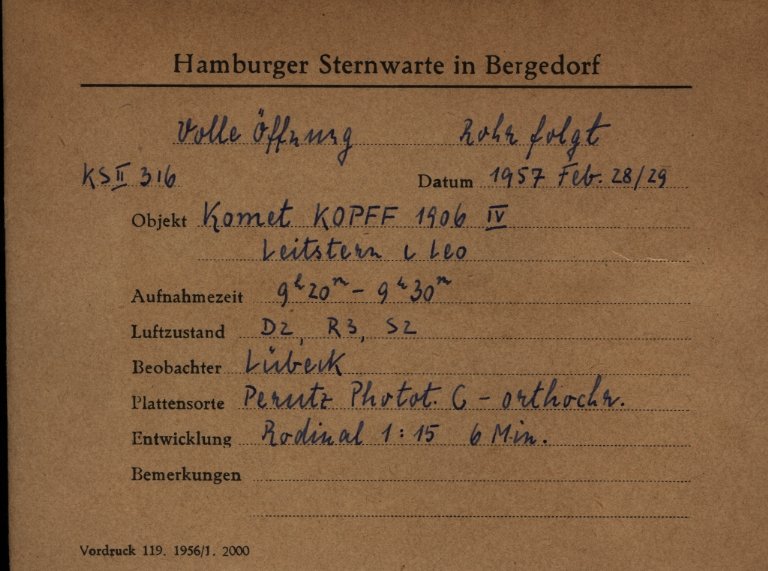 Hamburger Sternwarte in Bergedorf
Volle Öffnung Rohr folgt
KS II 316 Datum 1957 Feb. 28/29
Objekt Komet KOPFF 1906 IV
Leitstern ι Leo
Aufnahmezeit 9h20m – 9h30m
Luftzustand D2, R3, S2
Beobachter Lübeck
Plattensorte Perutz Photot. C – orthochr.
Entwicklung Rodinal 1:15 6 Min.
Bemerkungen
Vordruck 119. 1956/1. 2000